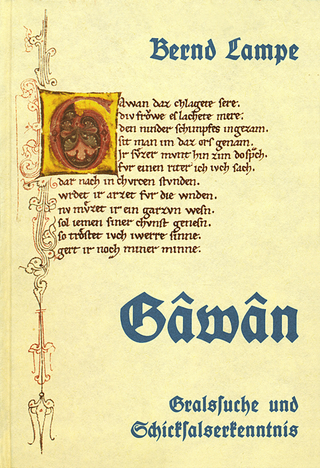 Bernd Lampe
Gawan daz chlagete sere.
div fröwe es lachete mere.
den schimpfes ingezam.
sit man im daz ors genam.
ir sv̊zer mvnt hin zim
fvr einen riter ich ivch sach.
dar nach in chvrcen stvnden.
wrdet ir arzet fvr die wnden.
nv mv̊zet ir ein garzvn wesn.
sol iemen siner chvnst genesn.
so tröstet ivch iwerre sinne.
gert ir noch miner minne.
Gâwân
Gralssuche und
Schicksalserkenntnis